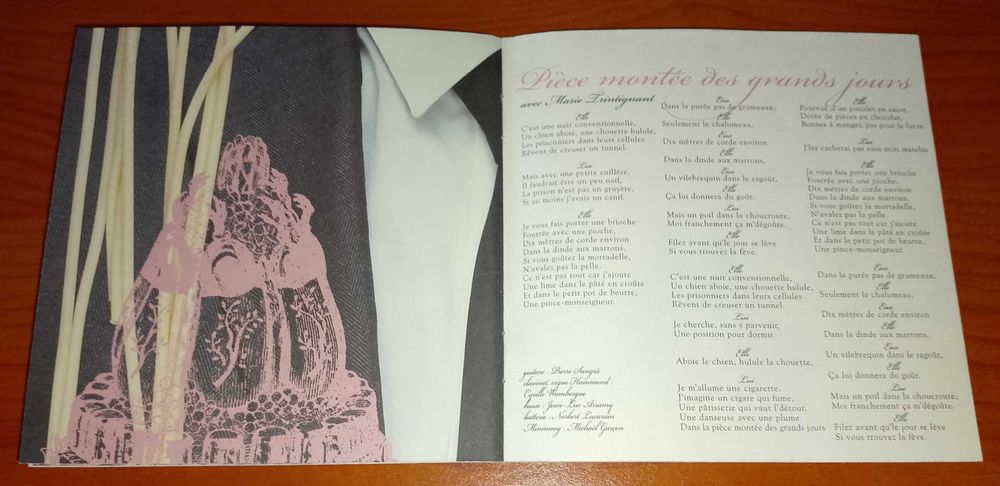 Pièce montée des grands jours
avec Marie Trintignant
Elle
C'est une nuit conventionnelle,
Un chien aboie, une chouette hulule,
Les prisonniers dans leurs cellules
Rêvent de creuser un tunnel.
Lui
Mais avec une petite cuillère,
Il faudrait être un peu naïf,
La prison n'est pas un gruyère,
Si au moins j'avais un canif.
Elle
Je vous fais porter une brioche
Fourrée avec une pioche,
Dix mètres de corde environ
Dans la dinde aux marrons,
Si vous goûtez la mortadelle,
N'avalez pas la pelle.
Ce n'est pas tout car j'ajoute
Une lime dans le pâté en croûte
Et dans le petit pot de beurre,
Une pince-monseigneur.
guitare : Pierre Sangrà
clavinet, orgue Hammond :
Cyrille Wambergue
basse : Jean-Luc Arramy
batterie : Norbert Lucarain
Minimoog : Michaël Garçon
Eux
Dans la purée pas de grumeaux,
Elle
Seulement le chalumeau,
Eux
Dix mètres de corde environ
Elle
Dans la dinde aux marrons,
Eux
Un vilebrequin dans le ragoût,
Elle
Ça lui donnera du goût.
Lui
Mais un poil dans la choucroute,
Moi franchement ça m'dégoûte.
Elle
Filez avant qu'le jour se lève
Si vous trouvez la fève.
Elle
C'est une nuit conventionnelle,
Un chien aboie, une chouette hulule,
Les prisonniers dans leurs cellules
Rêvent de creuser un tunnel.
Lui
Je cherche, sans y parvenir,
Une position pour dormir.
Elle
Aboie le chien, hulule la chouette,
Lui
Je m'allume une cigarette.
J'imagine un cigare qui fume,
Une pâtisserie qui vaut l'détour,
Une danseuse avec une plume
Dans la pièce montée des grands jours
Elle
Pourvue d'un pistolet en sucre,
Dotée de pièces en chocolat,
Bonnes à manger, pas pour le lucre,
Lui
J'les cacherai pas sous mon matelas
Elle
Je vous fais porter une brioche
Fourrée avec une pioche,
Dix mètres de corde environ
Dans la dinde aux marrons,
Si vous goûtez la mortadelle,
N'avalez pas la pelle.
Ce n'est pas tout car j'ajoute
Une lime dans le pâté en croûte
Et dans le petit pot de beurre,
Une pince-monseigneur.
Eux
Dans la purée pas de grumeaux,
Elle
Seulement le chalumeau,
Eux
Dix mètres de corde environ
Elle
Dans la dinde aux marrons,
Eux
Un vilebrequin dans le ragoût,
Elle
Ça lui donnera du goût.
Lui
Mais un poil dans la choucroute,
Moi franchement ça m'dégoûte.
Elle
Filez avant qu'le jour se lève
Si vous trouvez la fève.